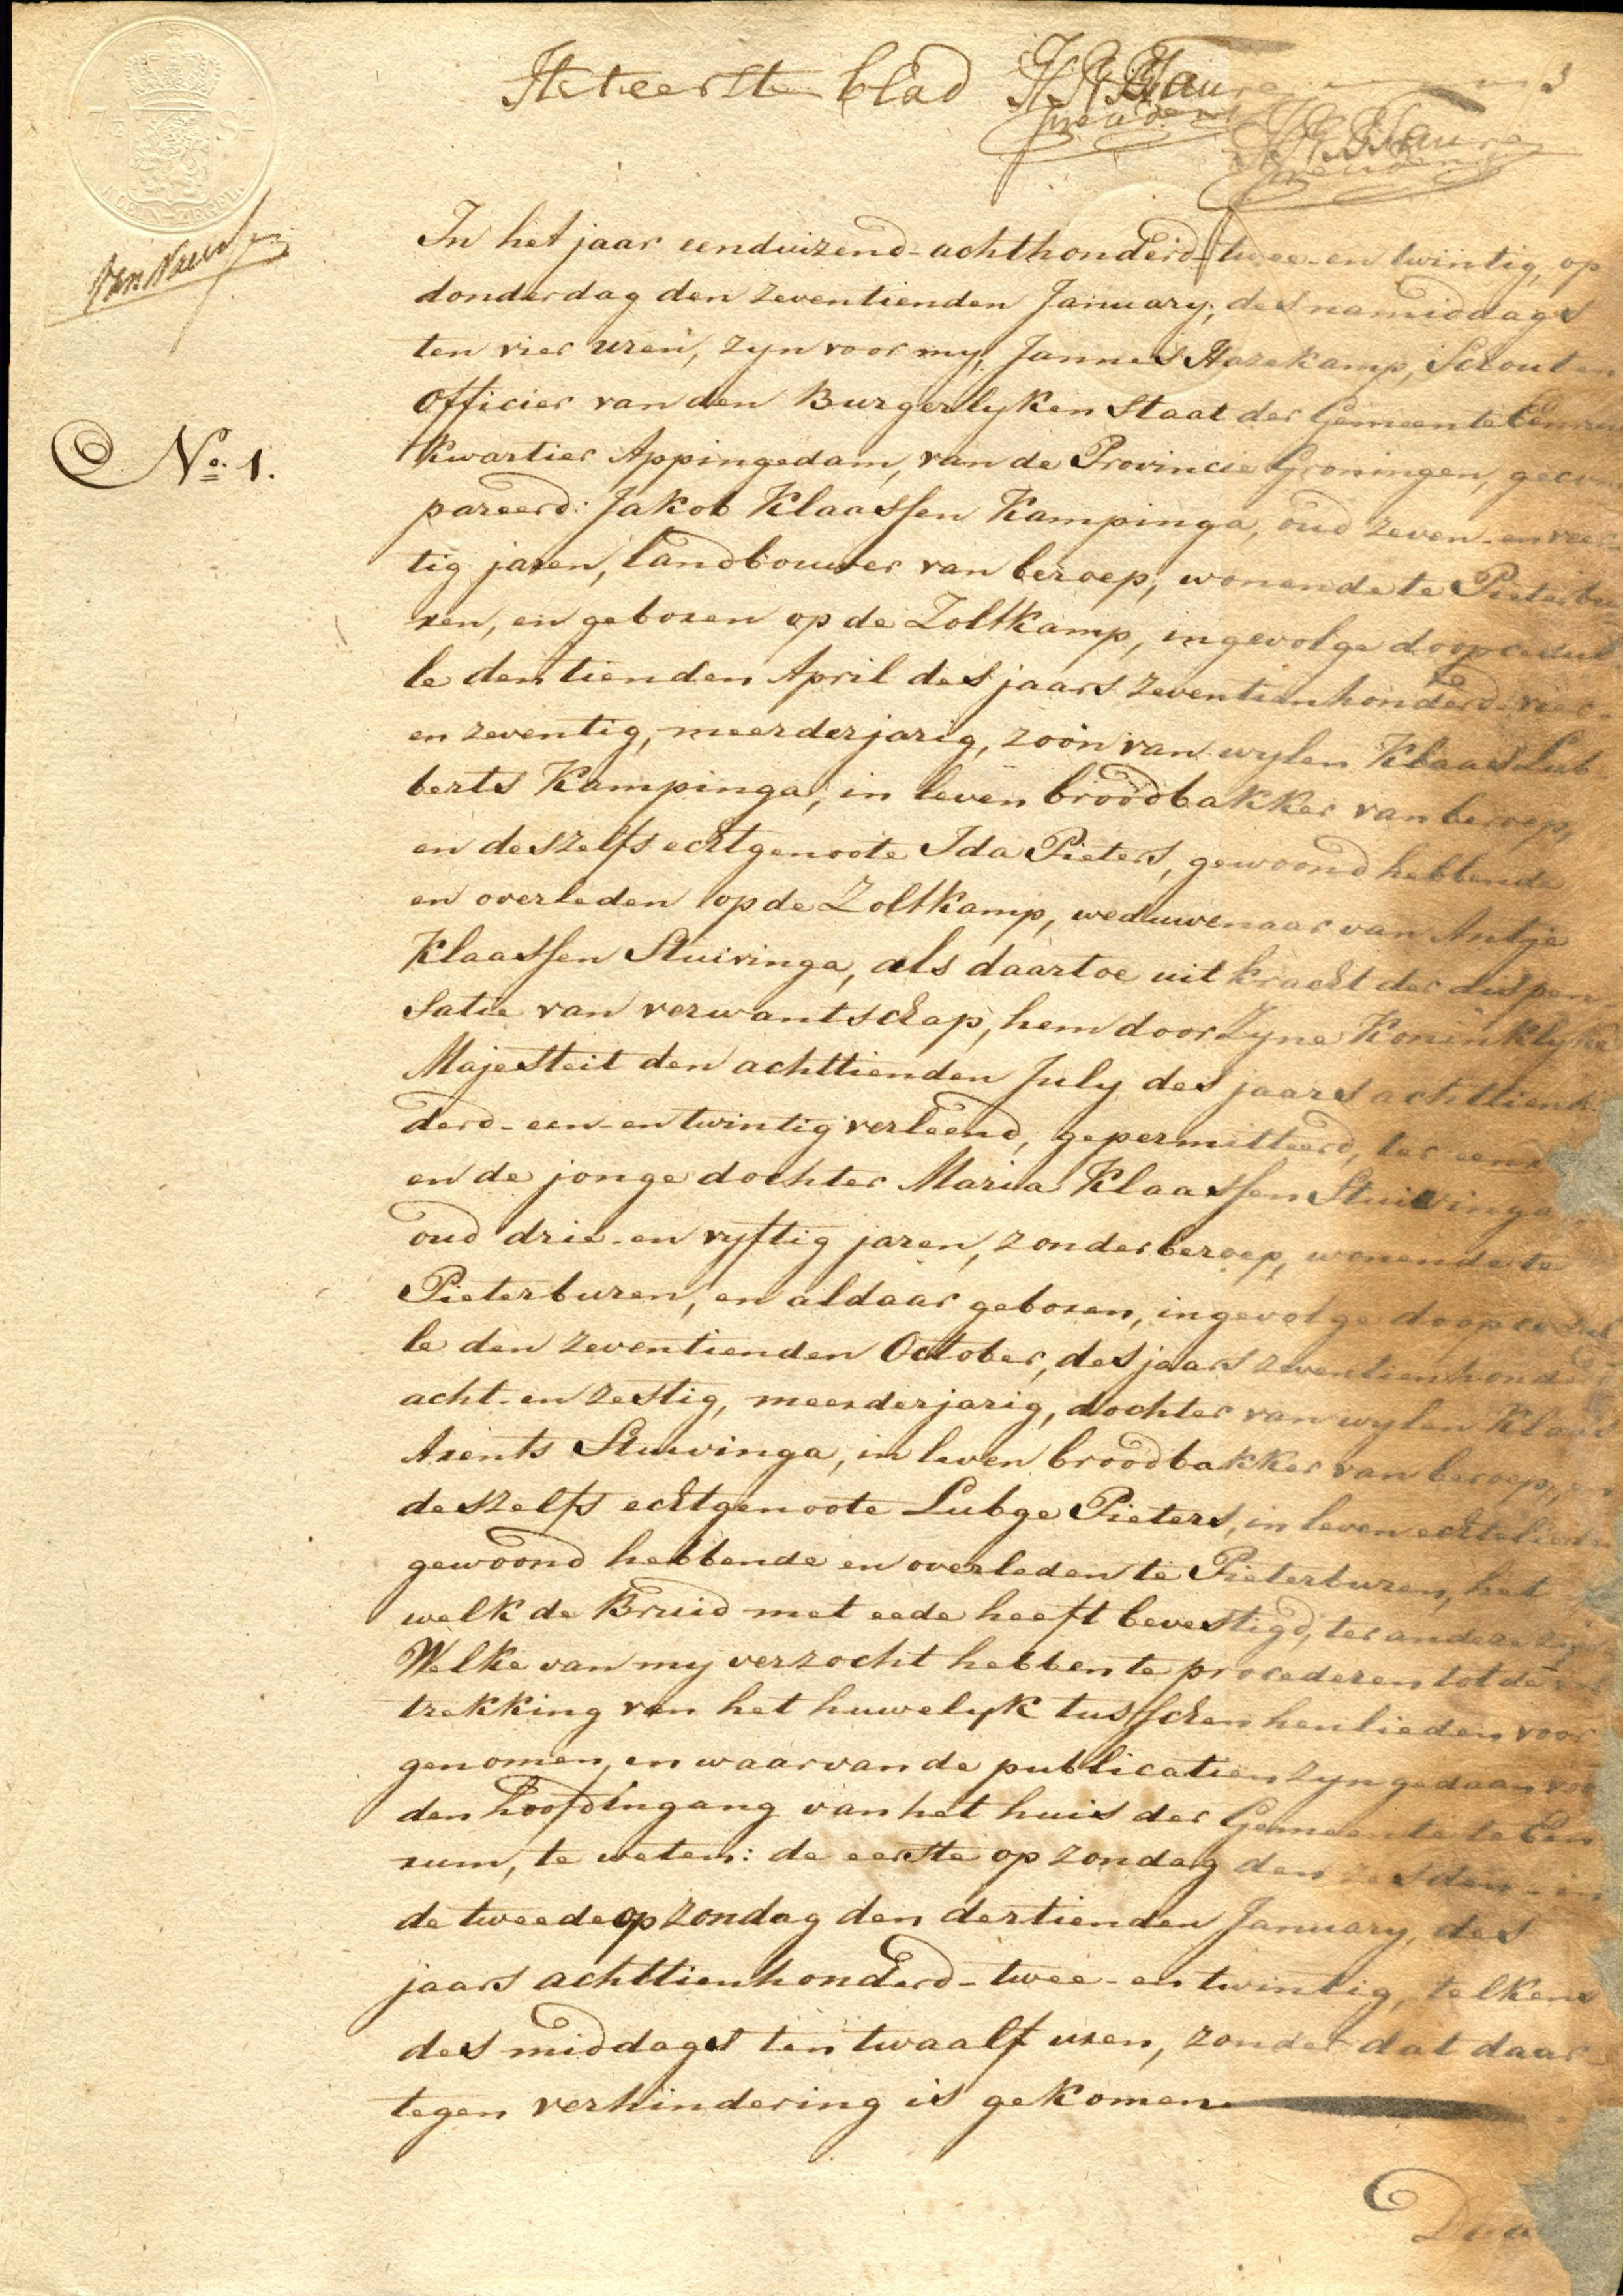 Het eerste blad
In het jaar eenduizend-achthonderd-twee-en twintig, op
donderdag den zeventienden January, des namiddags
ten vier uren, zyn voor my, Jannes Hazekamp, Schout en
Officier van den Burgerlyken Staat der Gemeente Eenrum
N.o 1.
Kwartier Appingedam, van de Provincie Groningen, gecom
pareerd: Jakob Klaassen Kampinga, oud zeven-en veer
tig jaren, landbouwer van beroep, wonende te Pieterbu
ren, en geboren op de Zoltkamp, ingevolge doopcedul
le den tienden April des jaars zeventienhonderd-vier-
en zeventig, meerderjarig, zoon van wylen Klaas Lub-
berts Kampinga, in leven broodbakker van beroep,
en deszelfs echtgenoote Ida Pieters, gewoond hebbende
en overleden op de Zoltkamp, weduwenaar van Antje
Klaassen Stuivinga, als daartoe uit kracht der dispen
satie van verwantschap, hem door Zyne Koninklyke
Majesteit den achttienden July des jaars achttienhon
derd-een-en twintig verleend, gepermitteerd, ter eenre
en de jonge dochter Maria Klaassen Stuivinga,
oud drie-en vyftig jaren, zonder beroep, wonende te
Pieterburen, en aldaar geboren, ingevolge doopcedul
le den zeventienden October, des jaars zeventienhonderd
acht-en zestig, meerderjarig, dochter van wylen Klaas
Arents Stuivinga, in leven broodbakker van beroep, en
deszelfs echtgenoote Lubge Pieters, in leven echtelieden
gewoond hebbende en overleden te Pieterburen, het
welk de Bruid met eede heeft bevestigd, ter andere zyde
Welke van my verzocht hebben te procederen tot de vol
trekking van het huwelyk tusschen henlieden voor
genomen, en waarvan de publicatien zyn gedaan voor
den hoofdingang van het huis der Gemeente te Een
rum, te weten: de eerste op zondag den zesden-en
de tweede op zondag den dertienden January, des
jaars achttienhonderd-twee-en twintig, telkens
des middags ten twaalf uren, zonder dat daar-
tegen verhindering is gekomen.